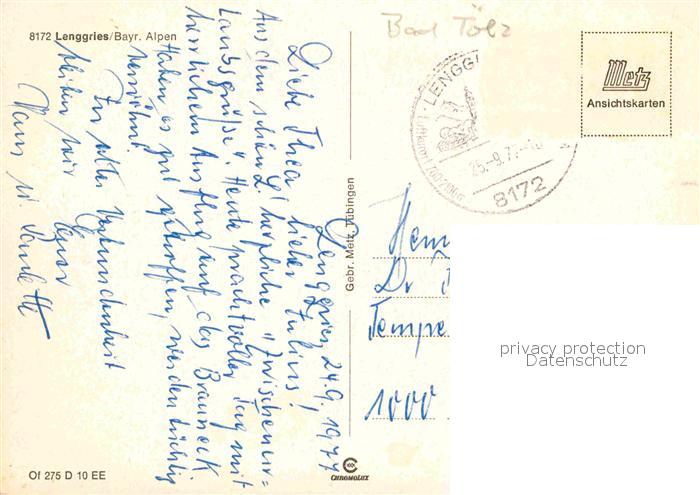 8172 Lenggries/Bayr. Alpen
Bad Tölz
Metz
Ansichtskarten
LENGG
25.-9.7
8172
Lenggries, 24.9.1977
Liebe Thea, lieber Julius!
Aus dem schönen L. herzliche "Zwischenur=
laubsgrüße". Heute prachtvoller Tag mit
herrlichem Ausflug auf das Brauneck
Haben es gut getroffen, werden tüchtig
verwöhnt.
In alter Verbundenheit
bleiben wir Euer
Hans u.
Gebr. Metz, Tübingen
Dr
Tempe
1000
privacy protection
Datenschutz
Of 275 D 10 EE
CHROMOLUX